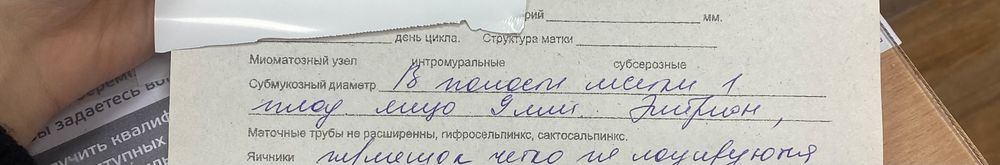 рий мм.
день цикла. Структура матки
Миоматозный узел интромуральные субсерозные
Субмукозный диаметр В полости матки 1
плод яйцо 9 мм. Эмбрион,
Маточные трубы не расширенны, гифросельпинкс, сактосальпинкс.
Яичники четко не лоцируются
ы задаетесь во
учить квалиф
ступных